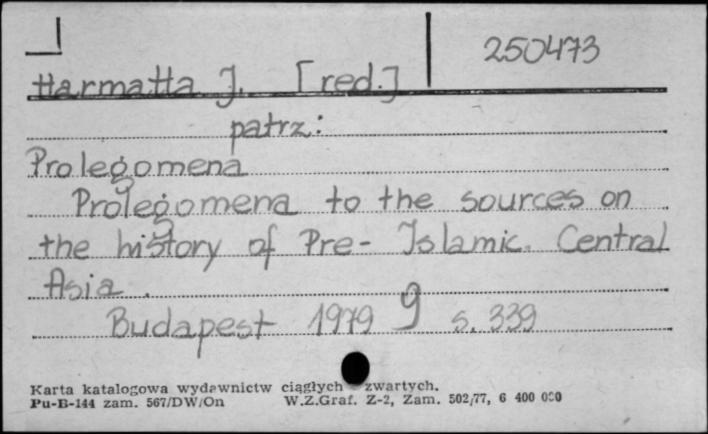 250473
Harmatta J. [red.]
patrz:
Prolegomena
Prolegomena to the sources on
the history of Pre-Islamic Central
Asia.
Budapest 1979 9 s. 339
Karta katalogowa wydawnictw ciągłych zwartych.
Pu-B-144 zam. 567/DW/On W.Z.Graf. Z-2, Zam. 502/77, 6 400 000